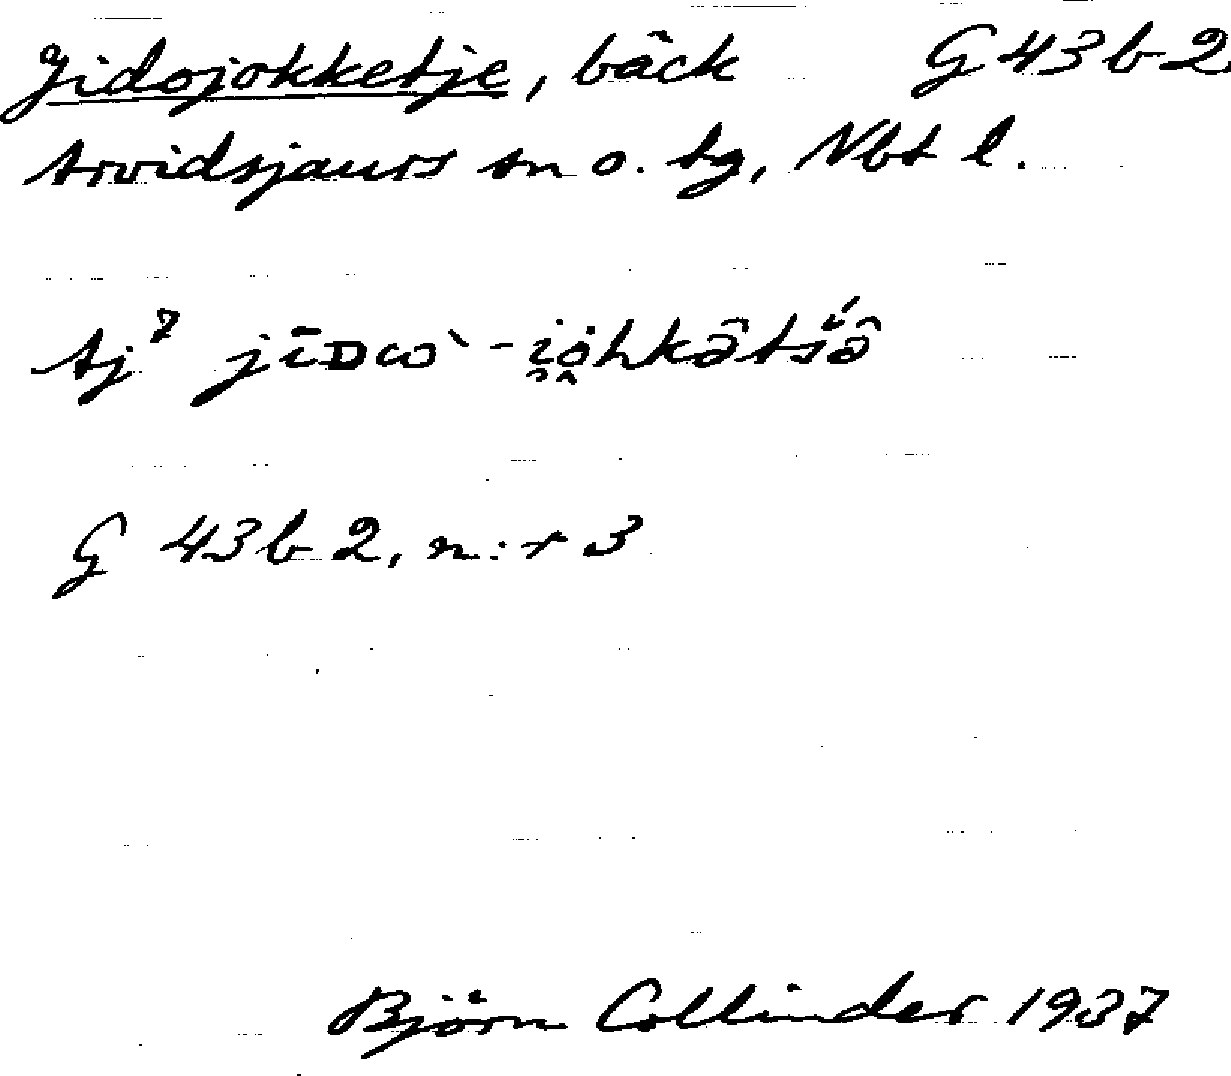 Jidojokketje, bäck G 43 b 2
Arvidsjaurs sn o. tg, Nbt l.
Aj⁷ jīDω`-i̯ȯ̭hkə̑tśə̑
G 43 b 2, n:r 3
Björn Collinder 1937